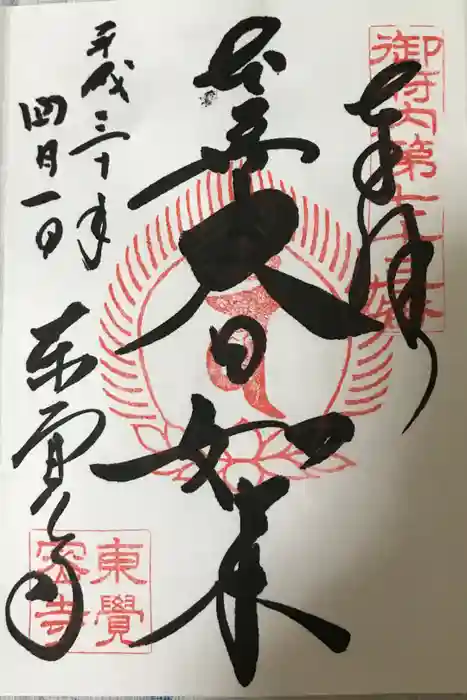 奉拝
御府内第七十三番
本尊大日如来
平成三十年
四月一日
東覚寺
東覺
密寺